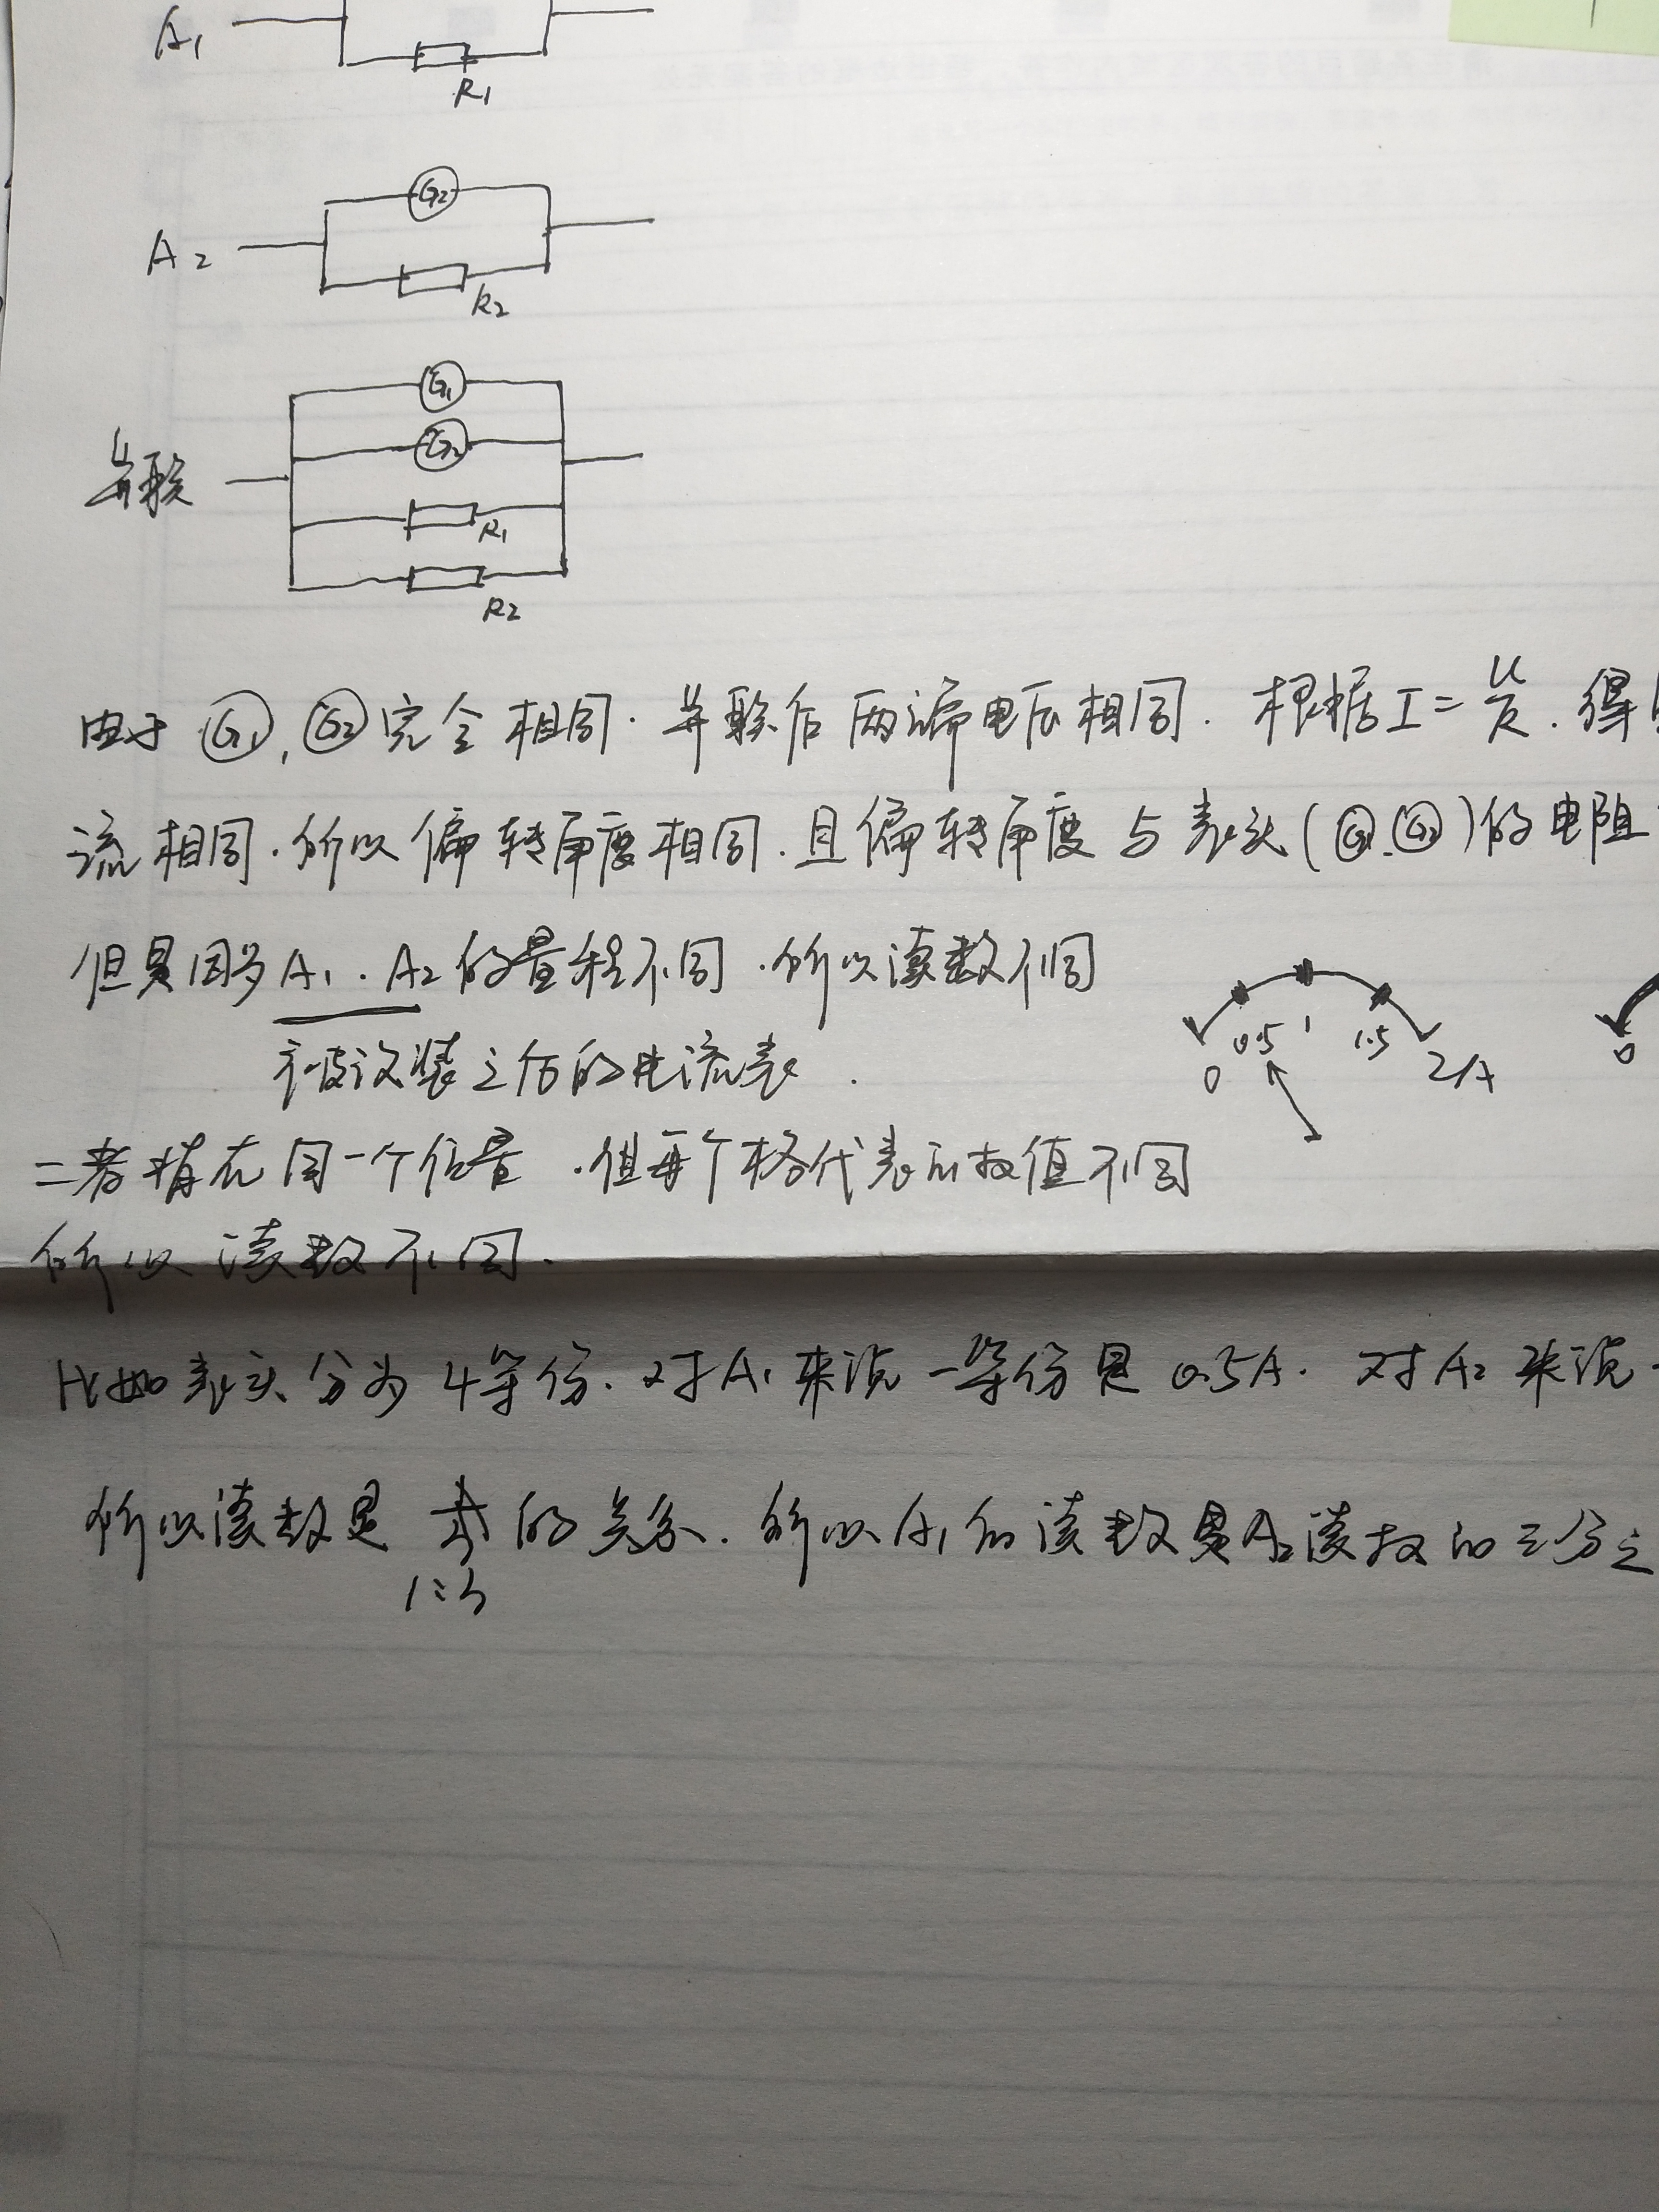 A₁
R₁
G₂
A₂
R₂
G₁
G₂
并联
R₁
R₂
由于 G₁, G₂ 完全相同. 并联后两端电压相同. 根据 I=U/R. 得
流相同. 所以偏转角度相同. 且偏转角度与表头(G₁.G₂)的电阻
但是因为A₁.A₂的量程不同.所以读数不同
被改装之后的电流表.
0 0.5 1 1.5 2/A
0
二者指在同一个位置.但每个格代表的数值不同
所以读数不同.
比如表头分为4等份. 对A₁来说一等份是0.5A. 对A₂来说
所以读数是 的关系. 所以A₁的读数是A₂读数的三分之
1:3